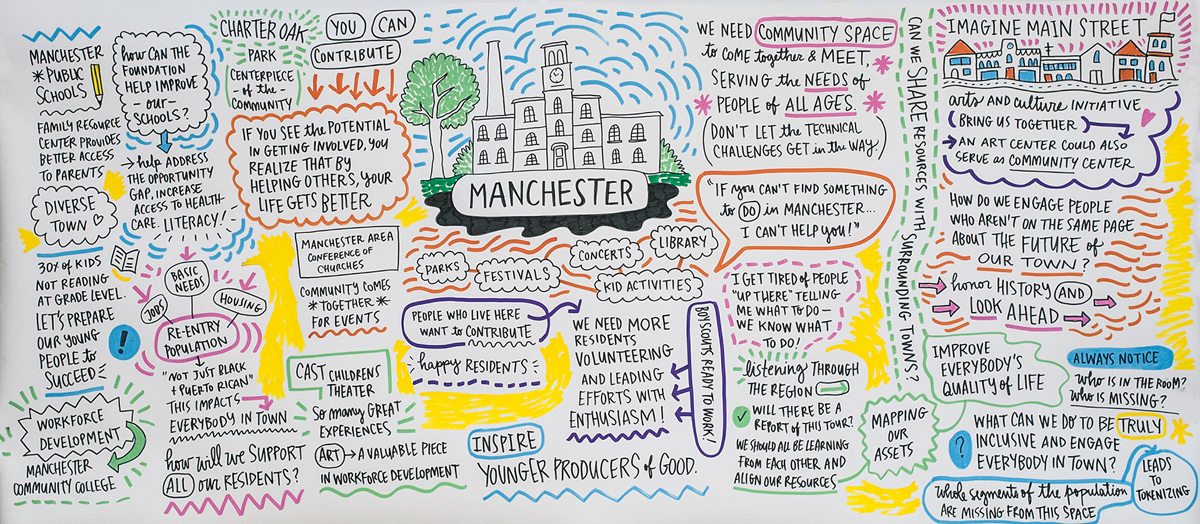 MANCHESTER
* PUBLIC
SCHOOLS
FAMILY RESOURCE
CENTER PROVIDES
BETTER ACCESS
TO PARENTS
DIVERSE
TOWN
30% OF KIDS
NOT READING
AT GRADE LEVEL.
LET'S PREPARE
OUR YOUNG
PEOPLE to
SUCCEED
!
WORKFORCE
DEVELOPMENT
MANCHESTER
COMMUNITY COLLEGE
how CAN THE
FOUNDATION
HELP IMPROVE
-our-
SCHOOLS?
→ help ADDRESS
THE OPPORTUNITY
GAP, INCREASE
ACCESS TO HEALTH-
CARE. LITERACY!
JOBS
BASIC
NEEDS
HOUSING
RE-ENTRY
POPULATION
"NOT JUST BLACK
+ PUERTO RICAN"
THIS IMPACTS →
EVERYBODY IN TOWN
how will we SUPPORT
ALL our RESIDENTS?
CHARTER OAK
PARK
CENTERPIECE
-of the-
COMMUNITY
YOU CAN
CONTRIBUTE
IF YOU SEE the POTENTIAL
IN GETTING INVOLVED, YOU
REALIZE THAT BY
HELPING OTHERS, YOUR
LIFE GETS BETTER.
MANCHESTER AREA
CONFERENCE OF
CHURCHES
COMMUNITY COMES
* TOGETHER *
FOR EVENTS
CAST CHILDRENS
THEATER
So many GREAT
EXPERIENCES
ART → A VALUABLE PIECE
IN WORKFORCE DEVELOPMENT
MANCHESTER
PARKS
FESTIVALS
CONCERTS
LIBRARY
KID ACTIVITIES
PEOPLE WHO LIVE HERE
WANT to CONTRIBUTE
happy RESIDENTS
WE NEED MORE
RESIDENTS
VOLUNTEERING
AND LEADING
EFFORTS WITH
ENTHUSIASM!
BOY SCOUTS READY TO WORK!
INSPIRE
YOUNGER PRODUCERS of GOOD.
WE NEED COMMUNITY SPACE
to COME together & MEET,
SERVING the NEEDS OF
PEOPLE of ALL AGES.
(DON'T LET the TECHNICAL
CHALLENGES GET in the WAY)
"IF you CAN'T FIND SOMETHING
to DO in MANCHESTER...
I CAN'T HELP YOU!"
I GET TIRED OF PEOPLE
"UP THERE" TELLING
ME WHAT TO DO -
WE KNOW WHAT
TO DO!
listening THROUGH
THE REGION
WILL THERE BE A
REPORT OF THIS TOUR?
WE SHOULD ALL BE LEARNING
FROM EACH OTHER AND
ALIGN OUR RESOURCES
MAPPING
OUR
ASSETS
CAN WE SHARE RESOURCES WITH SURROUNDING TOWNS?
IMAGINE MAIN STREET
arts AND culture INITIATIVE
(BRING US TOGETHER)
→ AN ART CENTER COULD ALSO
SERVE as COMMUNITY CENTER
HOW DO WE ENGAGE PEOPLE
WHO AREN'T ON THE SAME PAGE
ABOUT THE FUTURE of
OUR TOWN?
honor HISTORY AND
LOOK AHEAD
IMPROVE
EVERYBODY'S
QUALITY of LIFE
ALWAYS NOTICE
who IS IN THE ROOM?
who IS MISSING?
?
WHAT CAN WE DO TO BE TRULY *
INCLUSIVE AND ENGAGE
EVERYBODY IN TOWN?
whole SEGMENTS of the population
ARE MISSING FROM THIS SPACE
LEADS
TO
TOKENIZING